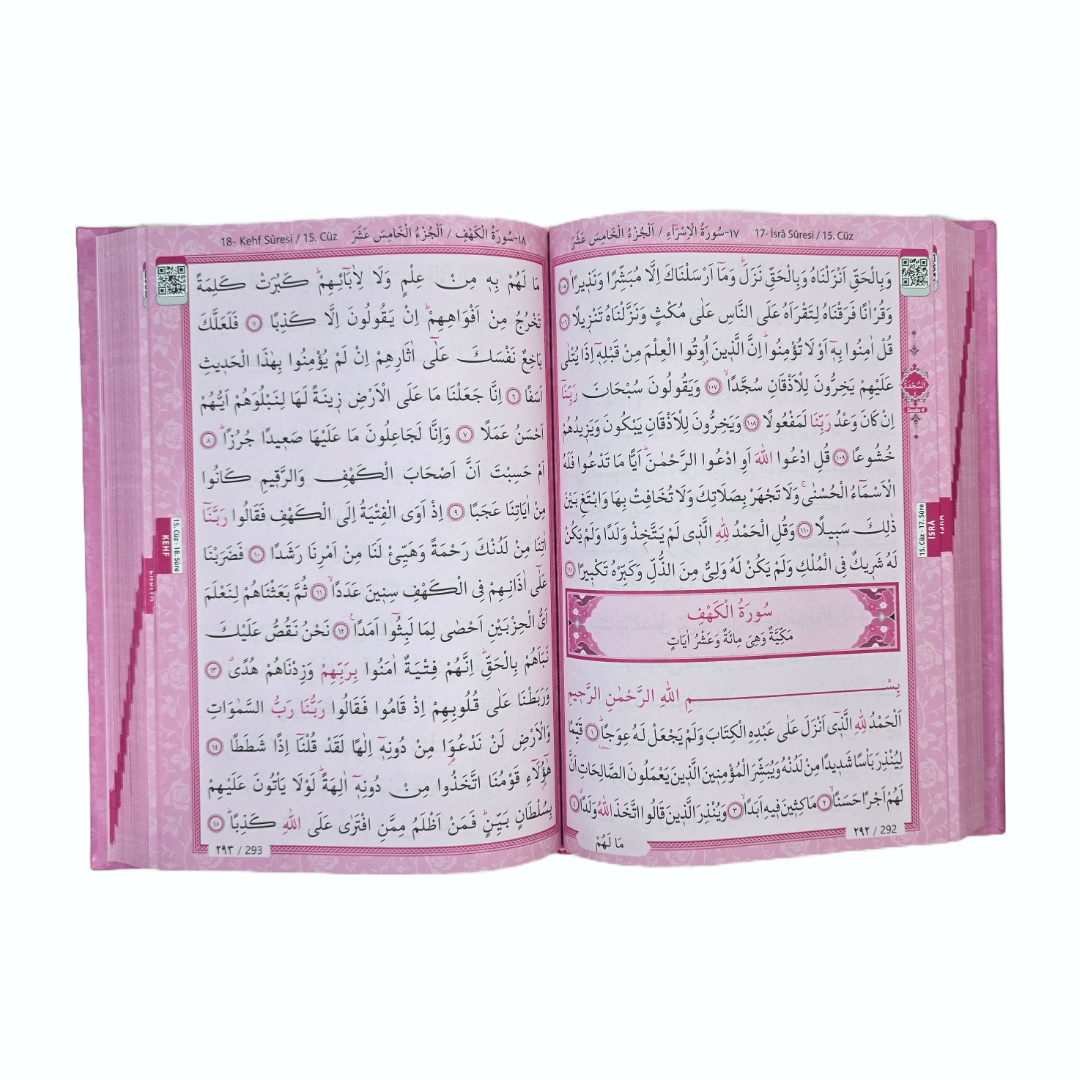 ١٧-سُورَةُ الْاِسْرَٓاءِ / اَلْجُزْءُ الْخَامِسَ عَشَرَ 17- İsrâ Sûresi / 15. Cüz
وَبِالْحَقِّ اَنْزَلْنَاهُ وَبِالْحَقِّ نَزَلَۜ وَمَٓا اَرْسَلْنَاكَ اِلَّا مُبَشِّرًا وَنَذ۪يرًاۢ ﴿١٠٥﴾
وَقُرْاٰنًا فَرَقْنَاهُ لِتَقْرَاَهُ عَلَى النَّاسِ عَلٰى مُكْثٍ وَنَزَّلْنَاهُ تَنْز۪يلًا ﴿١٠٦﴾
قُلْ اٰمِنُوا بِه۪ٓ اَوْ لَا تُؤْمِنُواۜ اِنَّ الَّذ۪ينَ اُو۫تُوا الْعِلْمَ مِنْ قَبْلِه۪ٓ اِذَا يُتْلٰى
عَلَيْهِمْ يَخِرُّونَ لِلْاَذْقَانِ سُجَّدًاۙ ﴿١٠٧﴾ وَيَقُولُونَ سُبْحَانَ رَبِّنَٓا
اِنْ كَانَ وَعْدُ رَبِّنَا لَمَفْعُولًا ﴿١٠٨﴾ وَيَخِرُّونَ لِلْاَذْقَانِ يَبْكُونَ وَيَز۪يدُهُمْ
خُشُوعًا ﴿١٠٩﴾ قُلِ ادْعُوا اللّٰهَ اَوِ ادْعُوا الرَّحْمٰنَۜ اَيًّا مَا تَدْعُوا فَلَهُ
الْاَسْمَٓاءُ الْحُسْنٰىۚ وَلَا تَجْهَرْ بِصَلَاتِكَ وَلَا تُخَافِتْ بِهَا وَابْتَغِ بَيْنَ
ذٰلِكَ سَب۪يلًا ﴿١١٠﴾ وَقُلِ الْحَمْدُ لِلّٰهِ الَّذ۪ي لَمْ يَتَّخِذْ وَلَدًا وَلَمْ يَكُنْ
لَهُ شَر۪يكٌ فِي الْمُلْكِ وَلَمْ يَكُنْ لَهُ وَلِيٌّ مِنَ الذُّلِّ وَكَبِّرْهُ تَكْب۪يرًا ﴿١١١﴾
سُورَةُ الْكَهْفِ
مَكِّيَّةٌ وَهِيَ مِائَةٌ وَعَشْرُ اٰيَاتٍ
بِسْمِ اللّٰهِ الرَّحْمٰنِ الرَّح۪يمِ
اَلْحَمْدُ لِلّٰهِ الَّذ۪ٓي اَنْزَلَ عَلٰى عَبْدِهِ الْكِتَابَ وَلَمْ يَجْعَلْ لَهُ عِوَجًاۜ ﴿١﴾ قَيِّمًا
لِيُنْذِرَ بَأْسًا شَد۪يدًا مِنْ لَدُنْهُ وَيُبَشِّرَ الْمُؤْمِن۪ينَ الَّذ۪ينَ يَعْمَلُونَ الصَّالِحَاتِ اَنَّ
لَهُمْ اَجْرًا حَسَنًاۙ ﴿٢﴾ مَاكِث۪ينَ ف۪يهِ اَبَدًاۙ ﴿٣﴾ وَيُنْذِرَ الَّذ۪ينَ قَالُوا اتَّخَذَ اللّٰهُ وَلَدًاۗ ﴿٤﴾
٢٩٢ / 292
مَا لَهُمْ
اَلسَّجْدَةُ
Secde 4
15. Cüz - 17. Sûre
İSRÂ
١٨-سُورَةُ الْكَهْفِ / اَلْجُزْءُ الْخَامِسَ عَشَرَ 18- Kehf Sûresi / 15. Cüz
مَا لَهُمْ بِه۪ مِنْ عِلْمٍ وَلَا لِاٰبَٓائِهِمْۜ كَبُرَتْ كَلِمَةً
تَخْرُجُ مِنْ اَفْوَاهِهِمْۜ اِنْ يَقُولُونَ اِلَّا كَذِبًا ﴿٥﴾ فَلَعَلَّكَ
بَاخِعٌ نَفْسَكَ عَلٰٓى اٰثَارِهِمْ اِنْ لَمْ يُؤْمِنُوا بِهٰذَا الْحَد۪يثِ
اَسَفًا ﴿٦﴾ اِنَّا جَعَلْنَا مَا عَلَى الْاَرْضِ ز۪ينَةً لَهَا لِنَبْلُوَهُمْ اَيُّهُمْ
اَحْسَنُ عَمَلًا ﴿٧﴾ وَاِنَّا لَجَاعِلُونَ مَا عَلَيْهَا صَع۪يدًا جُرُزًاۜ ﴿٨﴾
اَمْ حَسِبْتَ اَنَّ اَصْحَابَ الْكَهْفِ وَالرَّق۪يمِ كَانُوا
مِنْ اٰيَاتِنَا عَجَبًا ﴿٩﴾ اِذْ اَوَى الْفِتْيَةُ اِلَى الْكَهْفِ فَقَالُوا رَبَّنَٓا
اٰتِنَا مِنْ لَدُنْكَ رَحْمَةً وَهَيِّئْ لَنَا مِنْ اَمْرِنَا رَشَدًا ﴿١٠﴾ فَضَرَبْنَا
عَلٰٓى اٰذَانِهِمْ فِي الْكَهْفِ سِن۪ينَ عَدَدًاۙ ﴿١١﴾ ثُمَّ بَعَثْنَاهُمْ لِنَعْلَمَ
اَيُّ الْحِزْبَيْنِ اَحْصٰى لِمَا لَبِثُٓوا اَمَدًا۟ ﴿١٢﴾ نَحْنُ نَقُصُّ عَلَيْكَ
نَبَاَهُمْ بِالْحَقِّۜ اِنَّهُمْ فِتْيَةٌ اٰمَنُوا بِرَبِّهِمْ وَزِدْنَاهُمْ هُدًىۗ ﴿١٣﴾
وَرَبَطْنَا عَلٰى قُلُوبِهِمْ اِذْ قَامُوا فَقَالُوا رَبُّنَا رَبُّ السَّمٰوَاتِ
وَالْاَرْضِ لَنْ نَدْعُوَ۬ا مِنْ دُونِه۪ٓ اِلٰهًا لَقَدْ قُلْنَٓا اِذًا شَطَطًا ﴿١٤﴾
هٰٓؤُ۬لَٓاءِ قَوْمُنَا اتَّخَذُوا مِنْ دُونِه۪ٓ اٰلِهَةًۜ لَوْلَا يَأْتُونَ عَلَيْهِمْ
بِسُلْطَانٍ بَيِّنٍۜ فَمَنْ اَظْلَمُ مِمَّنِ افْتَرٰى عَلَى اللّٰهِ كَذِبًاۜ ﴿١٥﴾
٢٩٣ / 293
15. Cüz - 18. Sûre
KEHF